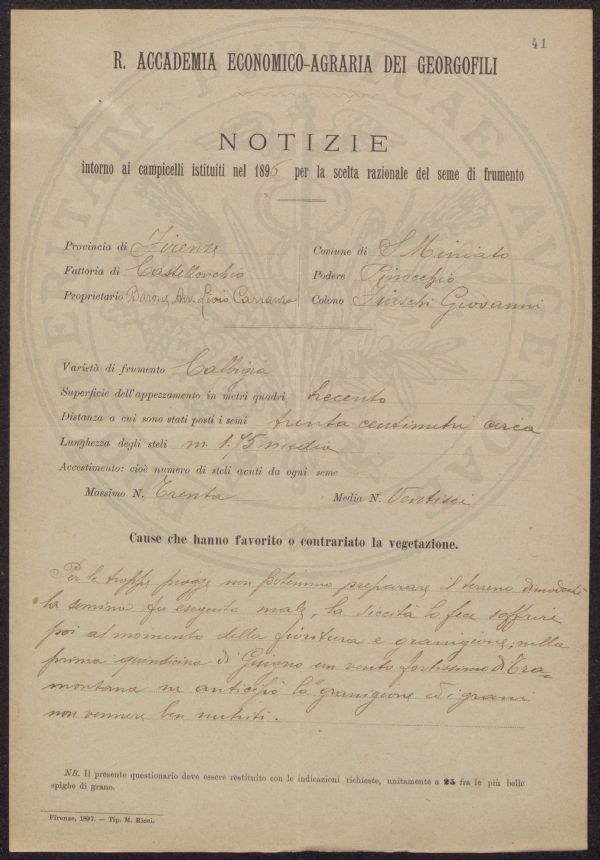 41
R. ACCADEMIA ECONOMICO-AGRARIA DEI GEORGOFILI
NOTIZIE
intorno ai campicelli istituiti nel 1896 per la scelta razionale del seme di frumento
Provincia di Firenze
Comune di S. Miniato
Fattoria di Castellonchio
Podere Pinocchio
Proprietario Barone Avv. Livio Carranza
Colono Giovanni
Varietà di frumento Calbigia
Superficie dell'appezzamento in metri quadri trecento
Distanza a cui sono stati posti i semi trenta centimetri circa
Lunghezza degli steli m. 1.45 media
Accestimento: cioè numero di steli avuti da ogni seme
Massimo N. Trenta
Media N. Ventisei
Cause che hanno favorito o contrariato la vegetazione.
Per le troppe piogge non potemmo preparare il terreno dimodochè
la semina fu eseguita male, la siccità lo fece soffrire
poi al momento della fioritura e granigione; nella
prima quindicina di Giugno un vento fortissimo di Tra=
montana ne anticipò la granigione ed i grani
non vennero ben nutriti.
NB. Il presente questionario deve essere restituito con le indicazioni richieste, unitamente a 25 fra le più belle
spighe di grano.
Firenze, 1897. — Tip. M. Ricci.